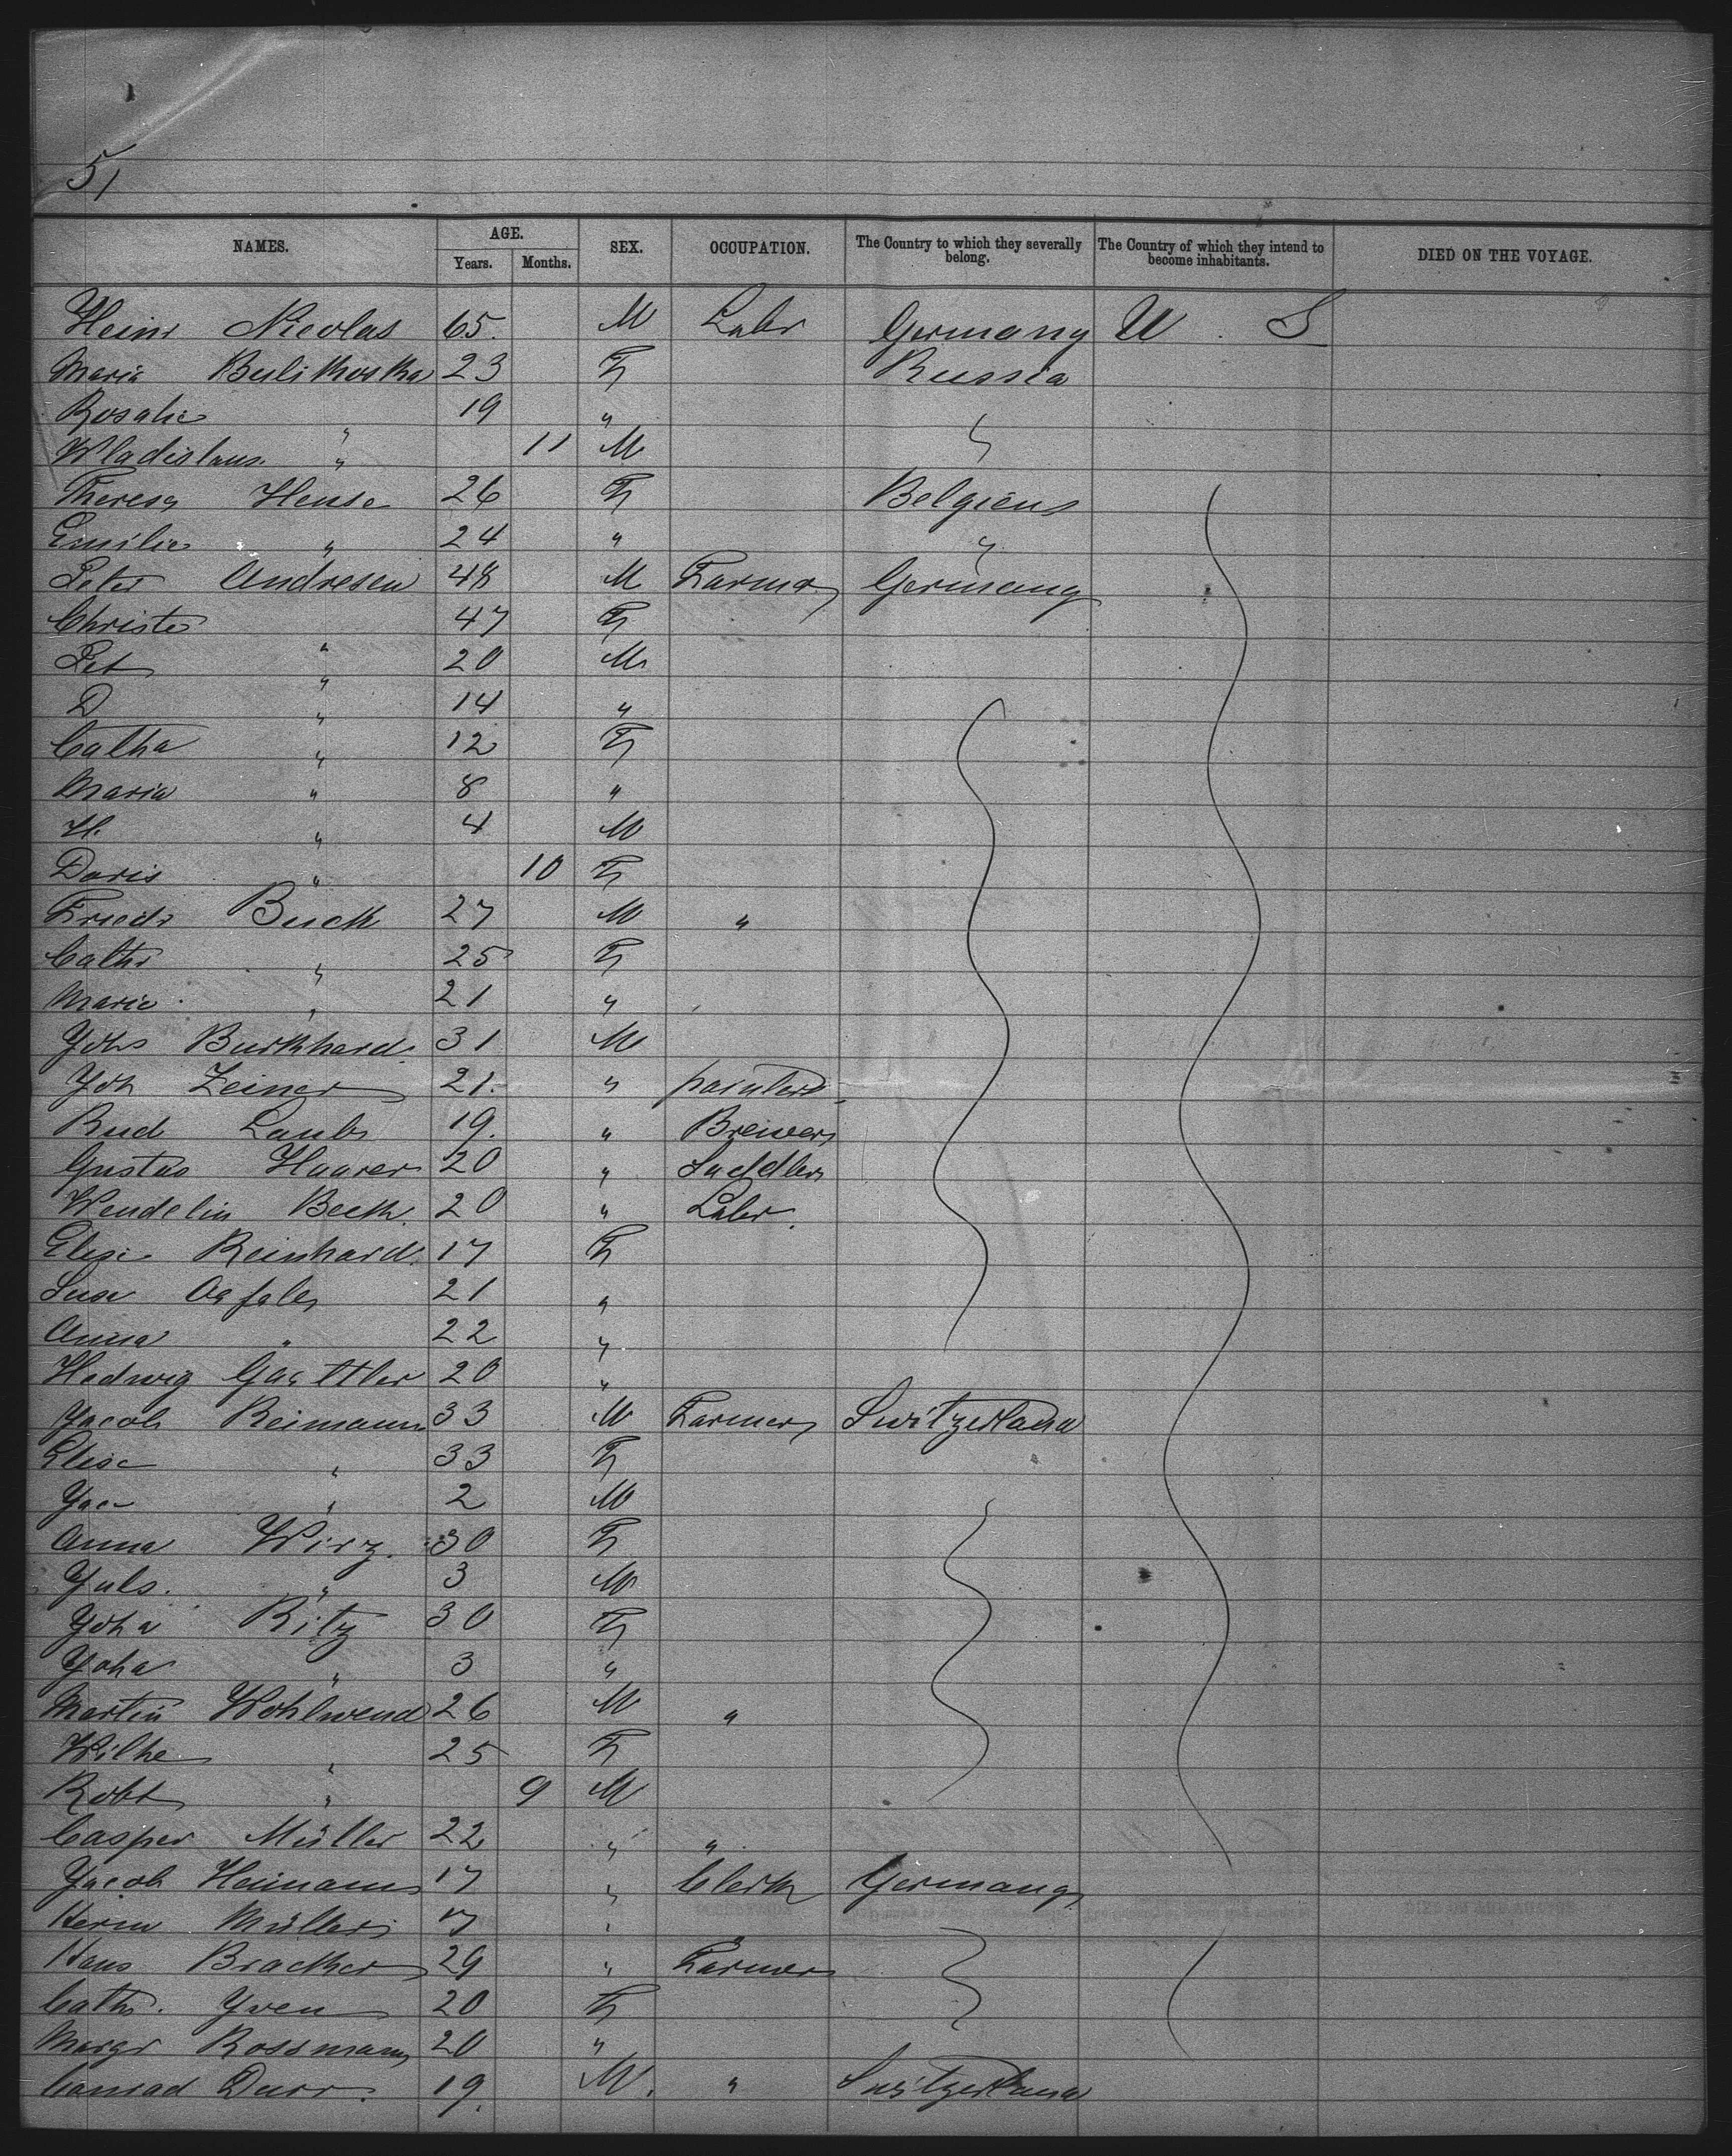 51
NAMES. AGE. SEX. OCCUPATION. The Country to which they severally belong. The Country of which they intend to become inhabitants. DIED ON THE VOYAGE.
Years. Months.
Heinr Nicolas 65. M Labr Germany U. S
Maria Bulikoska 23 F Russia
Rosalie " 19 "
Wladislaus " 11 M "
Theresa Hense 26 F Belgiens
Emilie " 24 " "
Peter Andresen 48 M Farmer Germany
Christe " 47 F
Pet " 20 M
D " 14 "
Catha " 12 F
Maria " 8 "
H. " 4 M
Doris " 10 F
Friedr Buck 27 M "
Cathr " 25 F
Marie " 21 "
Johs Burkhard. 31 M
Joh Zeiner 21. " painter
Rud Laube 19. " Brewer
Gustav Haarer 20 " Saddler
Wendelin Beck. 20 " Labr.
Elise Reinhard. 17 F
Luse 21 "
Anna " 22 "
Hedwig Gaettler 20 "
Jacob Reimann 33 M Farmer Switzerland
Elise " 33 F
Jac " 2 M
Anna Wirz. 30 F
Juls. " 3 M
Joha Ritz 30 F
Joha " 3 "
Martin Wohlwend 26 M "
Wilhe " 25 F
Robt " 9 M
Casper Müller 22 " "
Jacob Heimann 17 " Clerk Germany
Herm Müller 17 " "
Hans Bracker 29 " Farmer
Cathr. Yven 20 F
Margr Rossmann 20 "
Conrad Durr. 19. M. " Switzerland